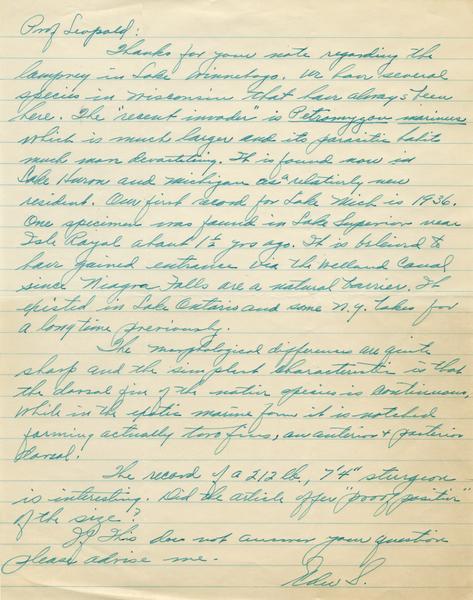 Prof Leopold:
Thanks for your note regarding the
lamprey in Lake Winnebago. We have several
species in Wisconsin that have always been
here. The "recent invader" is Petromyzon marinus
which is much larger and its parasitic habits
much more devastating. It is found now in
Lake Huron and Michigan as a relatively new
resident. Our first record for Lake Mich is 1936.
One specimen was found in Lake Superior near
Isle Royal about 1½ yrs ago. It is believed to
have gained entrance via the Welland Canal
since Niagra Falls are a natural barrier. It
existed in Lake Ontario and some N.Y. lakes for
a long time previously.
The morphological differences are quite
sharp and the simplest characteristic is that
the dorsal fin of the native species is continuous,
while in the exotic marine form it is notched
forming actually two fins, an anterior + posterior
dorsal.
The record of a 212 lb., 7'4" sturgeon
is interesting. Did the article offer "proof positive"
of the size?
If this does not answer your question
please advise me.
S.